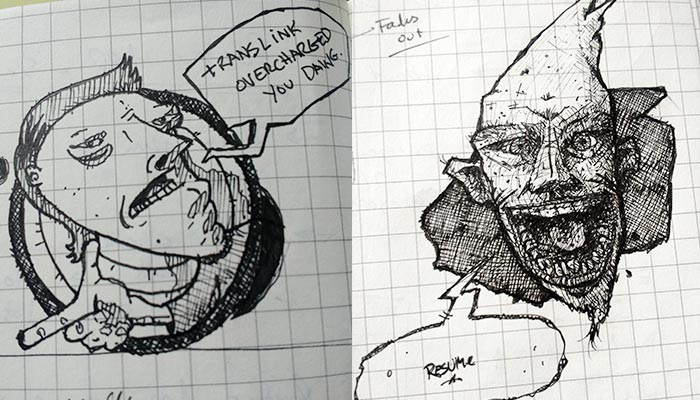 TRANSLINK
OVERCHARGED
YOU DAWG.
Fades
out
RESUME